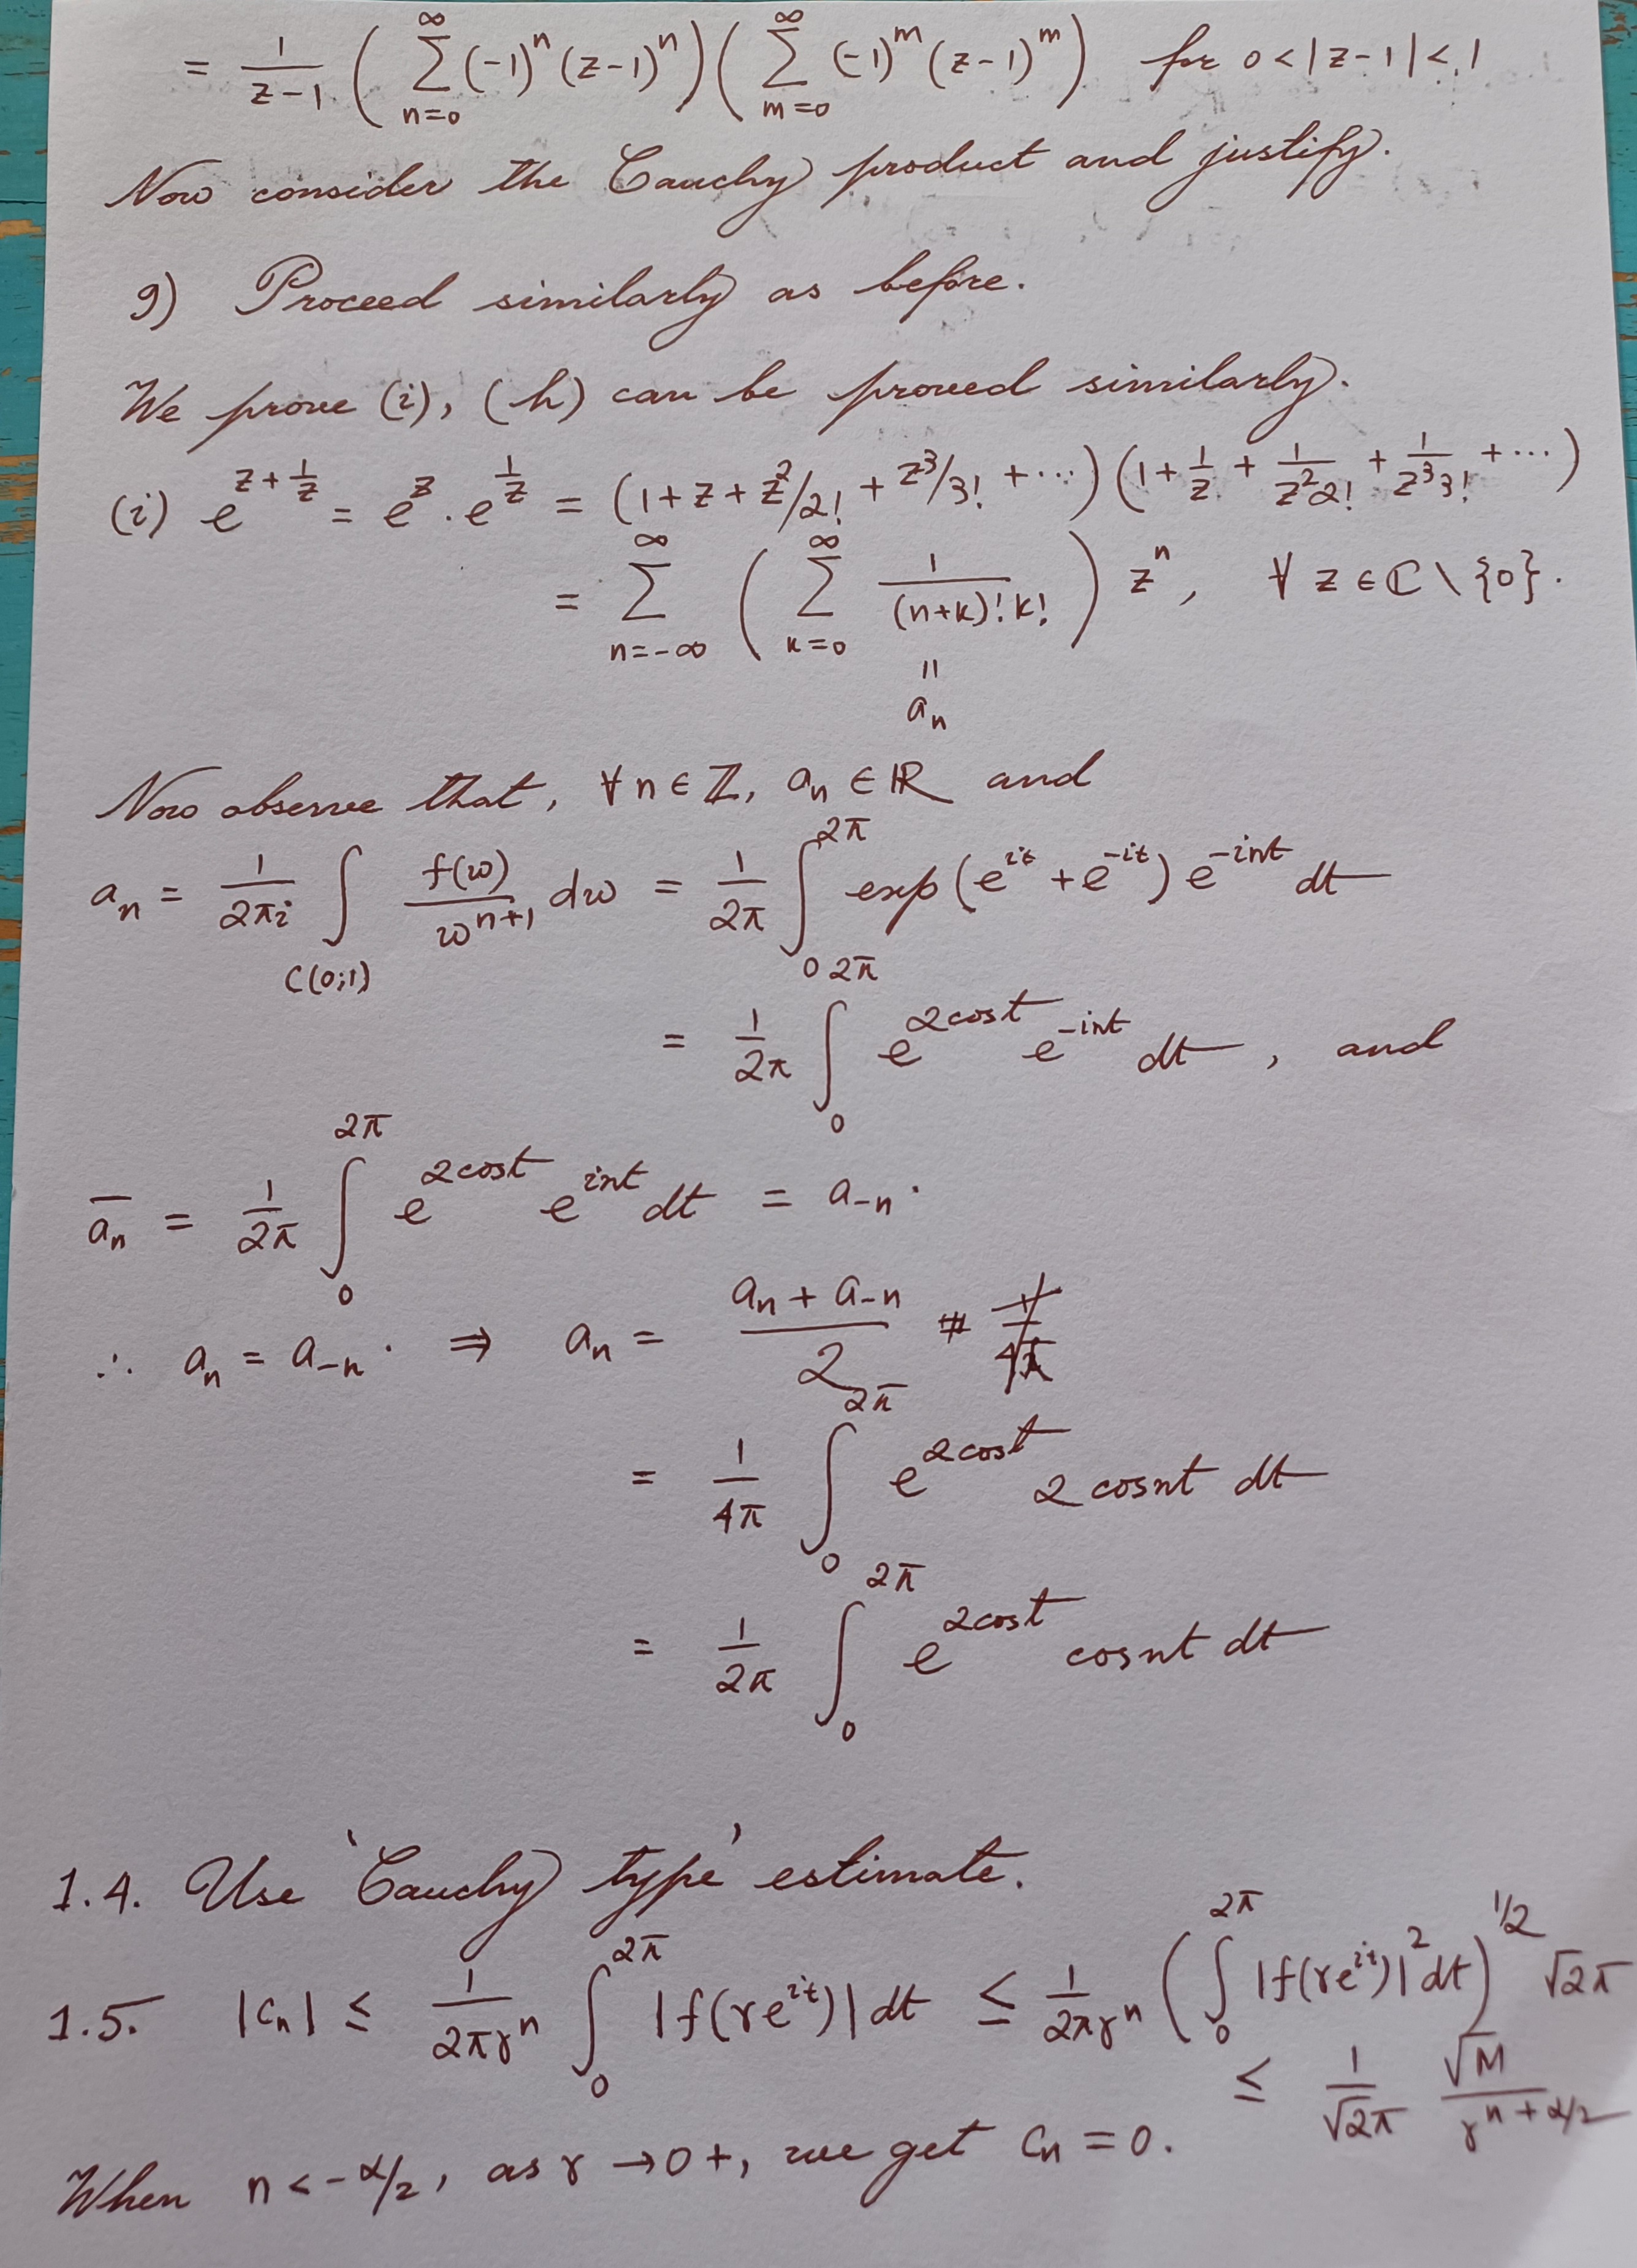 = 1/(z-1) ( ∑_{n=0}^{∞} (-1)^n (z-1)^n ) ( ∑_{m=0}^{∞} (-1)^m (z-1)^m ) for 0<|z-1|<1
Now consider the Cauchy product and justify.
g) Proceed similarly as before.
We prove (i), (h) can be proved similarly.
(i) e^{z+1/z} = e^z · e^{1/z} = (1+z+z^2/2! + z^3/3! + ···) (1 + 1/z + 1/(z^2 2!) + 1/(z^3 3!) + ···)
= ∑_{n=-∞}^{∞} ( ∑_{k=0}^{∞} 1/((n+k)! k!) ) z^n, ∀ z ∈ ℂ \ {0}.
=
a_n
Now observe that, ∀ n ∈ ℤ, a_n ∈ ℝ and
a_n = 1/(2πi) ∫_{C(0;1)} f(w)/w^{n+1} dw = 1/(2π) ∫_0^{2π} exp(e^{it} + e^{-it}) e^{-int} dt
= 1/(2π) ∫_0^{2π} e^{2cost} e^{-int} dt, and
\overline{a_n} = 1/(2π) ∫_0^{2π} e^{2cost} e^{int} dt = a_{-n}.
∴ a_n = a_{-n}. ⇒ a_n = (a_n + a_{-n})/2
= 1/(4π) ∫_0^{2π} e^{2cost} 2 cosnt dt
= 1/(2π) ∫_0^{2π} e^{2cost} cosnt dt
1.4. Use 'Cauchy type' estimate.
1.5. |c_n| ≤ 1/(2πr^n) ∫_0^{2π} |f(re^{it})| dt ≤ 1/(2πr^n) ( ∫_0^{2π} |f(re^{it})|^2 dt )^{1/2} √2π
≤ 1/√2π √M/r^{n+α/2}
When n < -α/2, as r → 0+, we get c_n = 0.